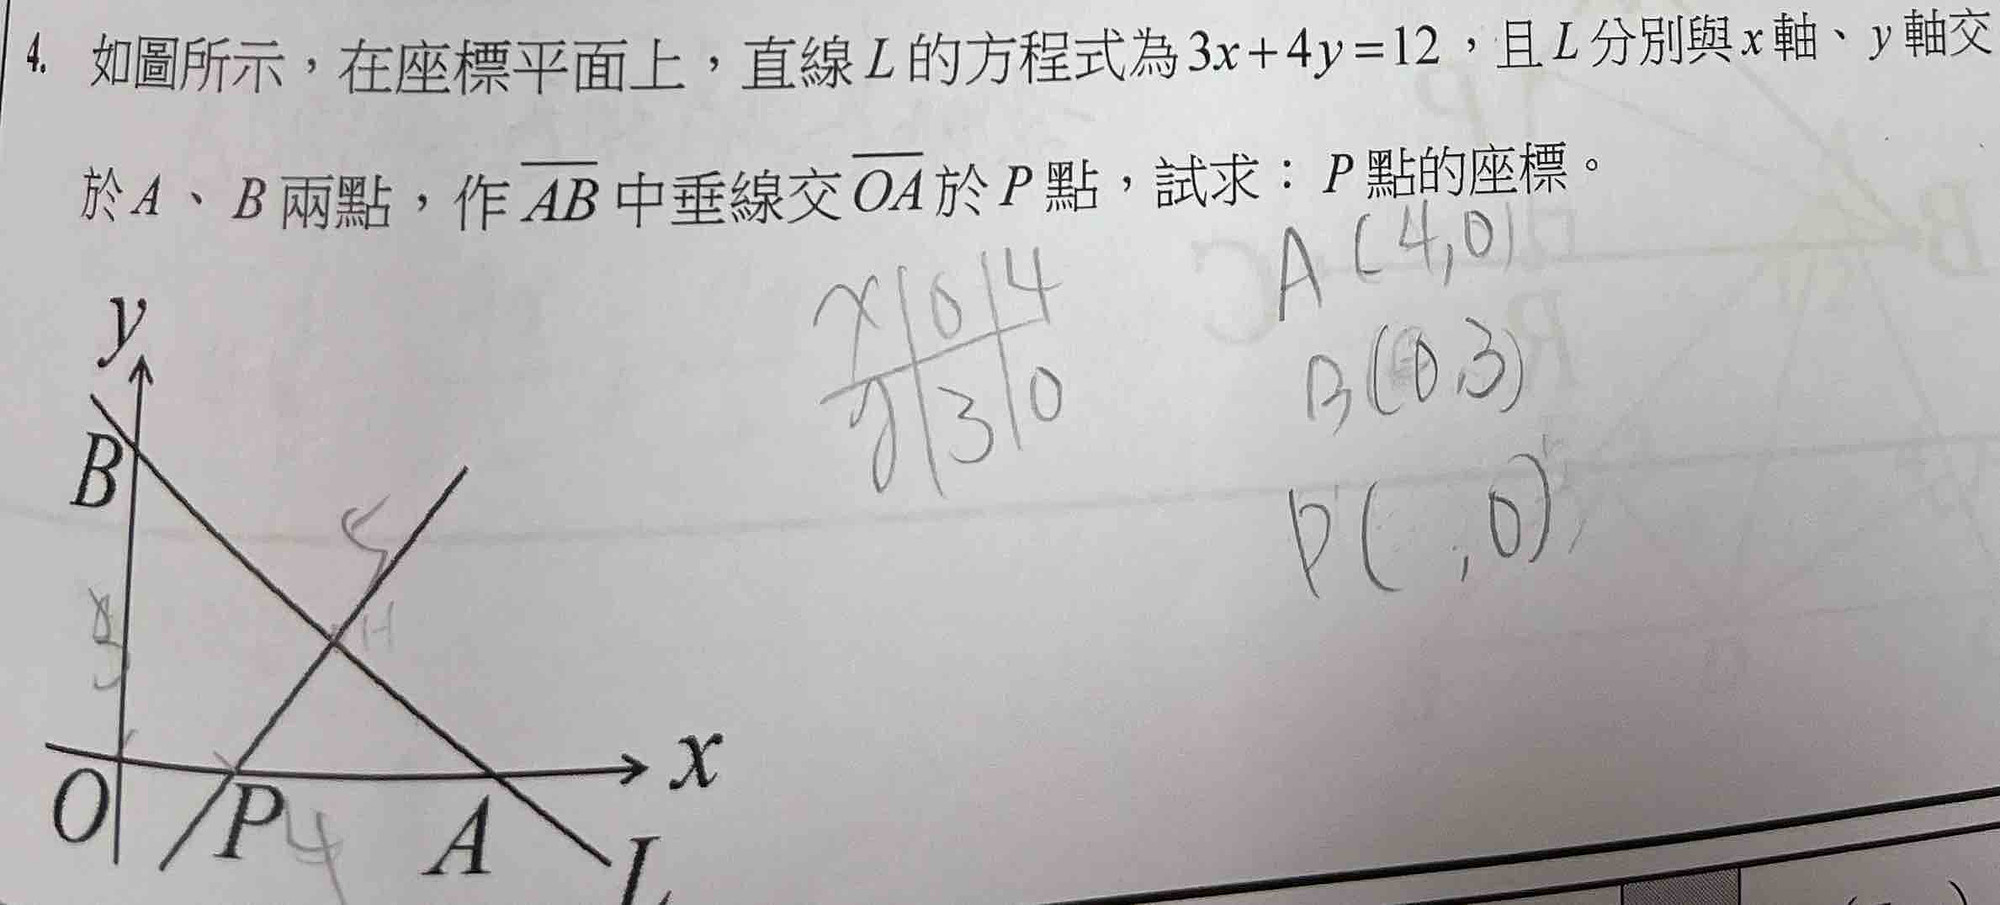 4. 如圖所示，在座標平面上，直線 L 的方程式為 3x+4y=12，且 L 分別與 x 軸、y 軸交
於 A、B 兩點，作 AB 中垂線交 OA 於 P 點，試求：P 點的座標。
x 0 4
y 3 0
A (4,0)
B (0.3)
P ( ,0)
y
B
5
H
3
x
O
P
4
A
L